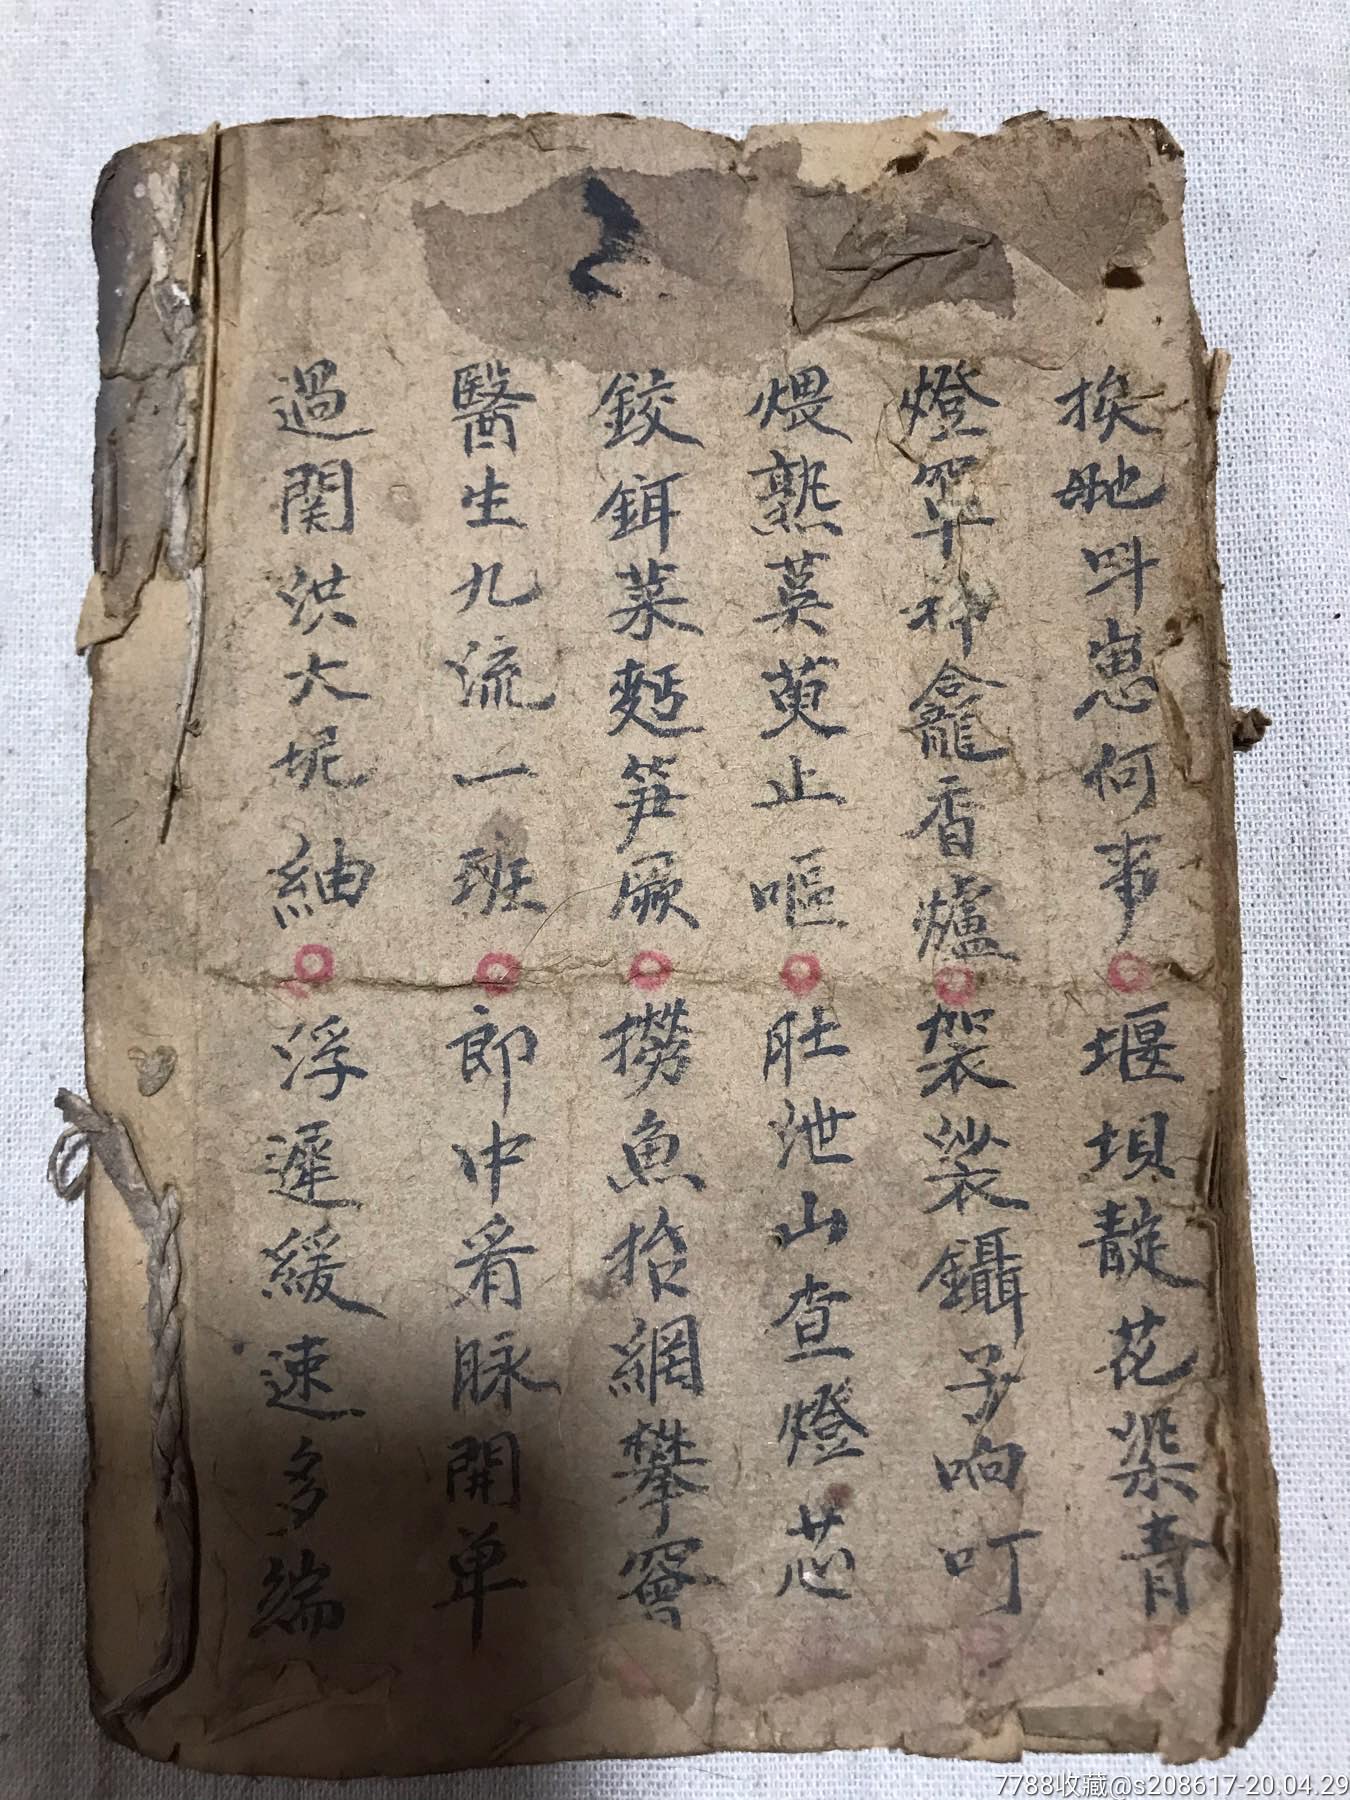 挨毑呌崽何事 堰垻靛花染青
燈罩神龕香爐 袈裟鑷子响叮
煨熟莫莄止嘔 肚泄山查燈芯
鉸鉺菜麪笋蕨 撈魚抬網攀窨
醫生九流一班 郎中看脉開单
過関洪大坭紬 浮遲緩速多端
7788收藏@s208617-20.04.29